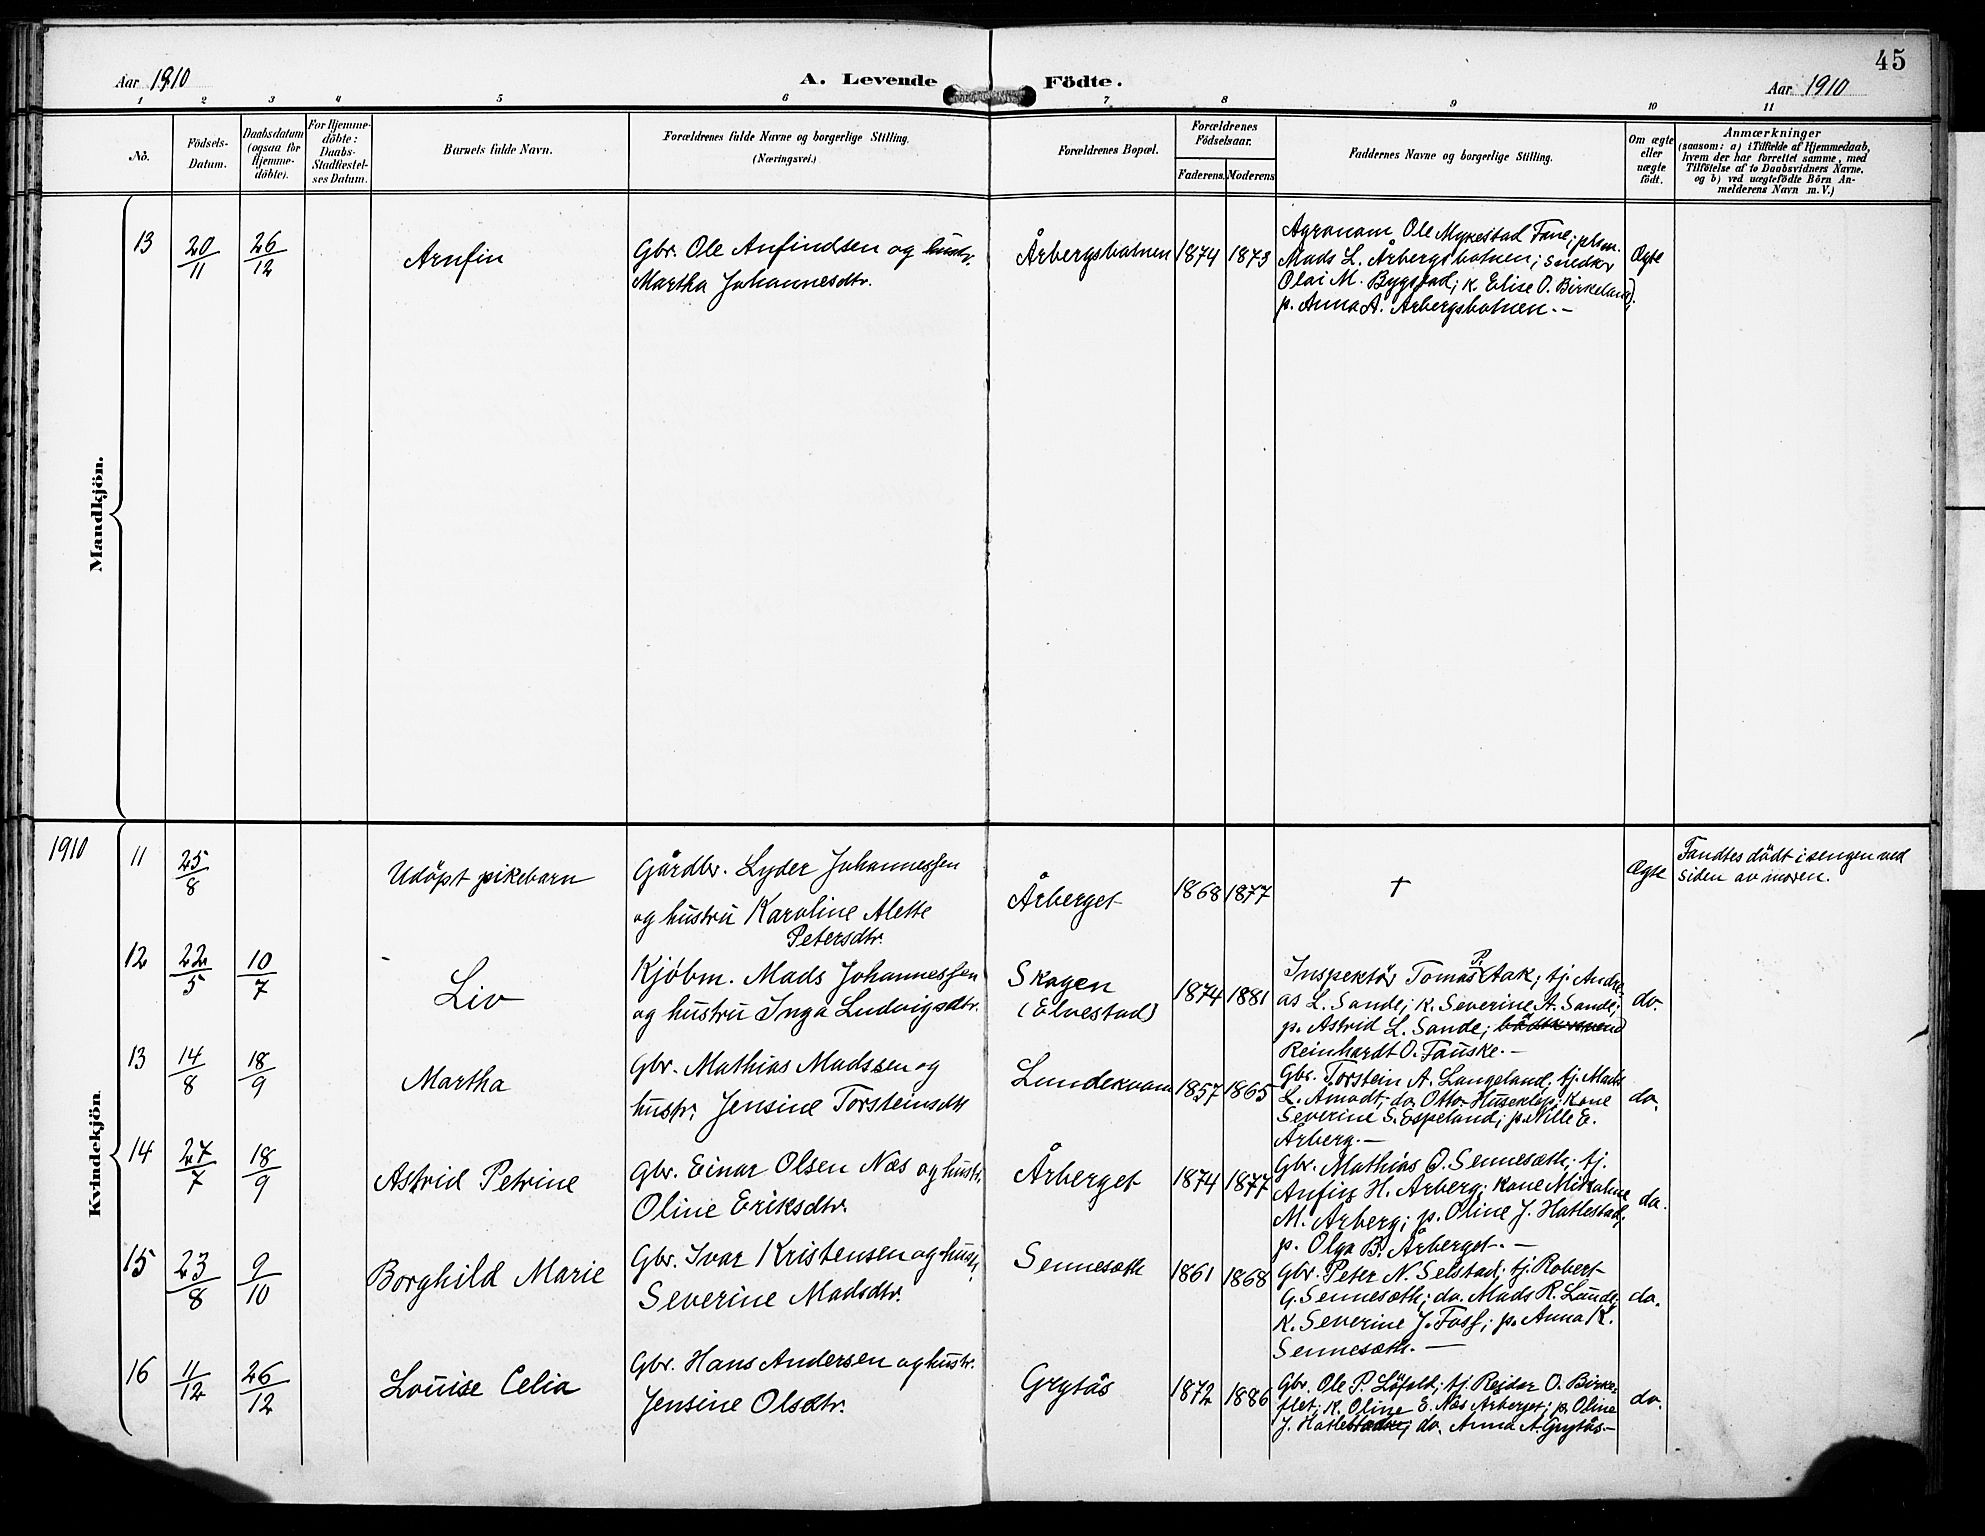 45
Aar 1910
A. Levende Födte.
Aar 1910
1 2 3 4 5 6 7 8 9 10 11
No.
Födsels-
Datum.
Daabsdatum
(ogsaa för
Hjemme-
döbte).
For Hjemme-
döbte:
Daabs-
Stadfæstel-
ses Datum.
Barnets fulde Navn.
Forældrenes fulde Navne og borgerlige Stilling.
(Næringsvei.)
Forældrenes Bopæl.
Forældrenes
Födselsaar.
Faderens. Moderens
Faddernes Navne og borgerlige Stilling.
Om ægte
eller
uægte
födt.
Anmærkninger
(saasom: a) i Tilfælde af Hjemmedaab,
hvem der har forrettet samme, med
Tilföielse af to Daabsvidners Navne,
og b) ved uægtefödte Börn An-
melderens Navn m. V.)
Mandkjön.
13
20/11
26/12
Arnfin
Gbr. Ole Anfindsen og hustr.
Martha Johannesdtr.
Årbergsbotnen
1874
1873
Agronom Ole Mykestad Fane;
Mads L. Årbergsbotnen; snedker
Olai M. Bygstad; k. Elise O. Birkeland;
p. Anna A. Årbergsbotnen. —
Ægte
Kvindekjön.
1910
11
25/8
Udöpt pikebarn
Gårdbr. Lyder Johannessen
og hustru Karoline Alette
Petersdtr.
Årberget
1868
1877
†
Ægte
Fandtes dödt i sengen ved
siden av moren.
12
22/5
10/7
Liv
Kjöbm. Mads Johannessen
og hustru Inga Ludvigsdtr.
Skogen
(Elvestad)
1874
1881
Inspektör Tomas P. Aak; tj. Andre-
as L. Sande; k. Severine A. Sande;
p. Astrid L. Sande;
Reinhardt O. Fauske. —
do.
13
14/8
18/9
Martha
Gbr. Mathias Madssen og
hustr. Jensine Torsteinsdtr
Lundekvam
1857
1865
Gbr. Torstein A. Langeland; tj. Mads
L. Åmodt; do. Otto Husenlep; Kone
Severine S. Espeland; p. Nille E.
Årberg. —
do.
14
27/7
18/9
Astrid Petrine
Gbr. Einar Olsen Næs og hustr.
Oline Eriksdtr.
Årberget
1874
1877
Gbr. Mathias O. Sennesæth; tj.
Anfin H. Årberg; kone Mikaline
M. Årberg; p. Oline J. Hatlestad;
p. Olga B. Årberget. —
do.
15
23/8
9/10
Borghild Marie
Gbr. Ivar Kristensen og hustr.
Severine Madsdtr.
Sennesæth
1861
1868
Gbr. Peter N. Selstad; tj. Robert
G. Sennesæth; do. Mads R. Lunde;
k. Severine J. Foss; p. Anna K.
Sennesæth. —
do.
16
11/12
26/12
Louise Celia
Gbr. Hans Andersen og hustr.
Jensine Olsdtr.
Grytås
1872
1886
Gbr. Ole P. Löfald; tj. Reidar O. Birke-
flet; k. Oline E. Næs Årberget; p. Oline
J. Hatlestad; do. Anna A. Grytås —
do.